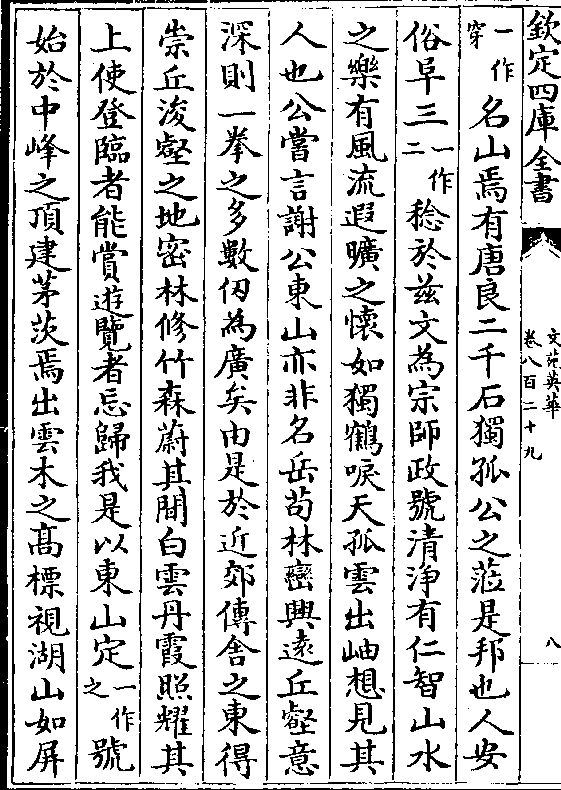 欽定四庫全書
文苑英華
卷八百二十九
八
一作穿名山焉有唐良二千石獨孤公之蒞是邦也人安
俗阜三一作二稔於兹文為宗師政號清浄有仁智山水
之樂有風流遐曠之懷如獨鶴唳天孤雲出岫想見其
人也公嘗言謝公東山亦非名岳苟林巒興遠丘壑意
深則一拳之多數仭為廣矣由是於近郊傳舍之東得
崇丘浚壑之地密林修竹森蔚其間白雲丹霞照耀其
上使登臨者能賞遊覽者忘歸我是以東山定一作之號
始於中峰之頂建茅茨焉出雲木之髙標視湖山如屏